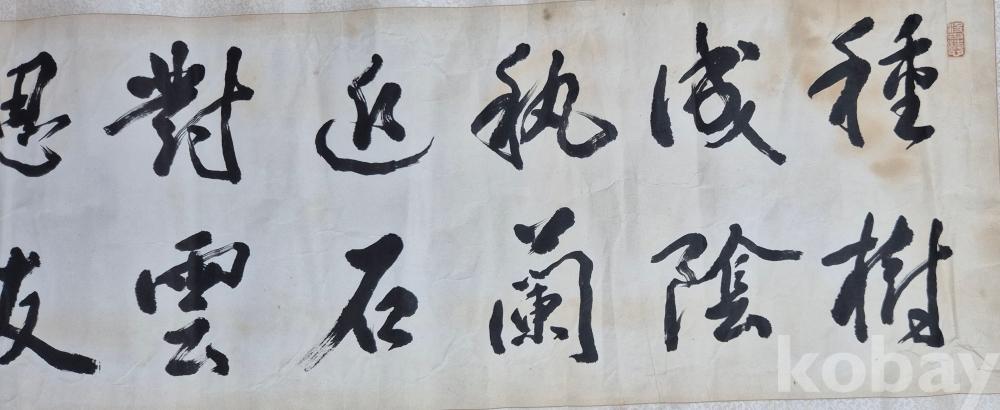 種樹
成陰
秇蘭
近石
對雲
思友
kobay